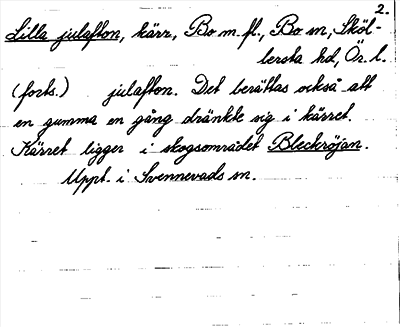 2.
Lilla julafton, kärr, Bo m. fl., Bo sn, Sköl-
lersta hd, Ör. l.
(forts.) julafton. Det berättas också att
en gumma en gång dränkte sig i kärret.
Kärret ligger i skogsområdet Bleckröjan.
Uppt. i Svennevads sn.